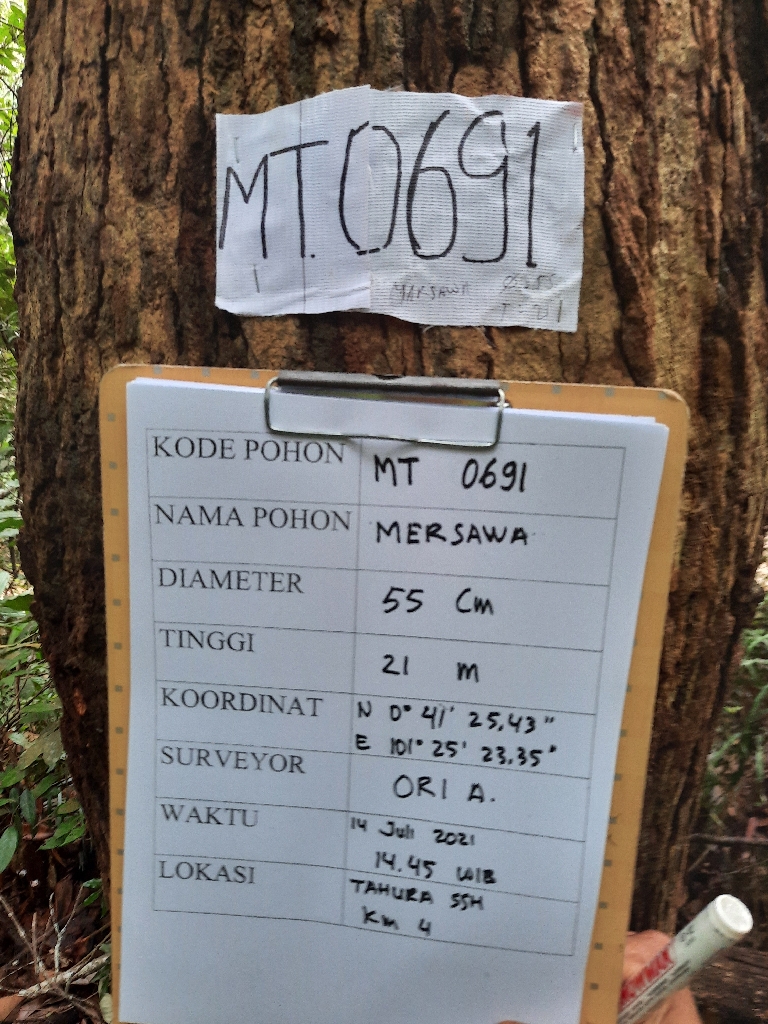 MT.0691
MERSAWA
KODE POHON MT 0691
NAMA POHON MERSAWA
DIAMETER 55 Cm
TINGGI 21 m
KOORDINAT N 0° 41' 25,43"
E 101° 25' 23,35"
SURVEYOR ORI A.
WAKTU 14 Juli 2021
14.45 WIB
LOKASI TAHURA SSH
Km 4